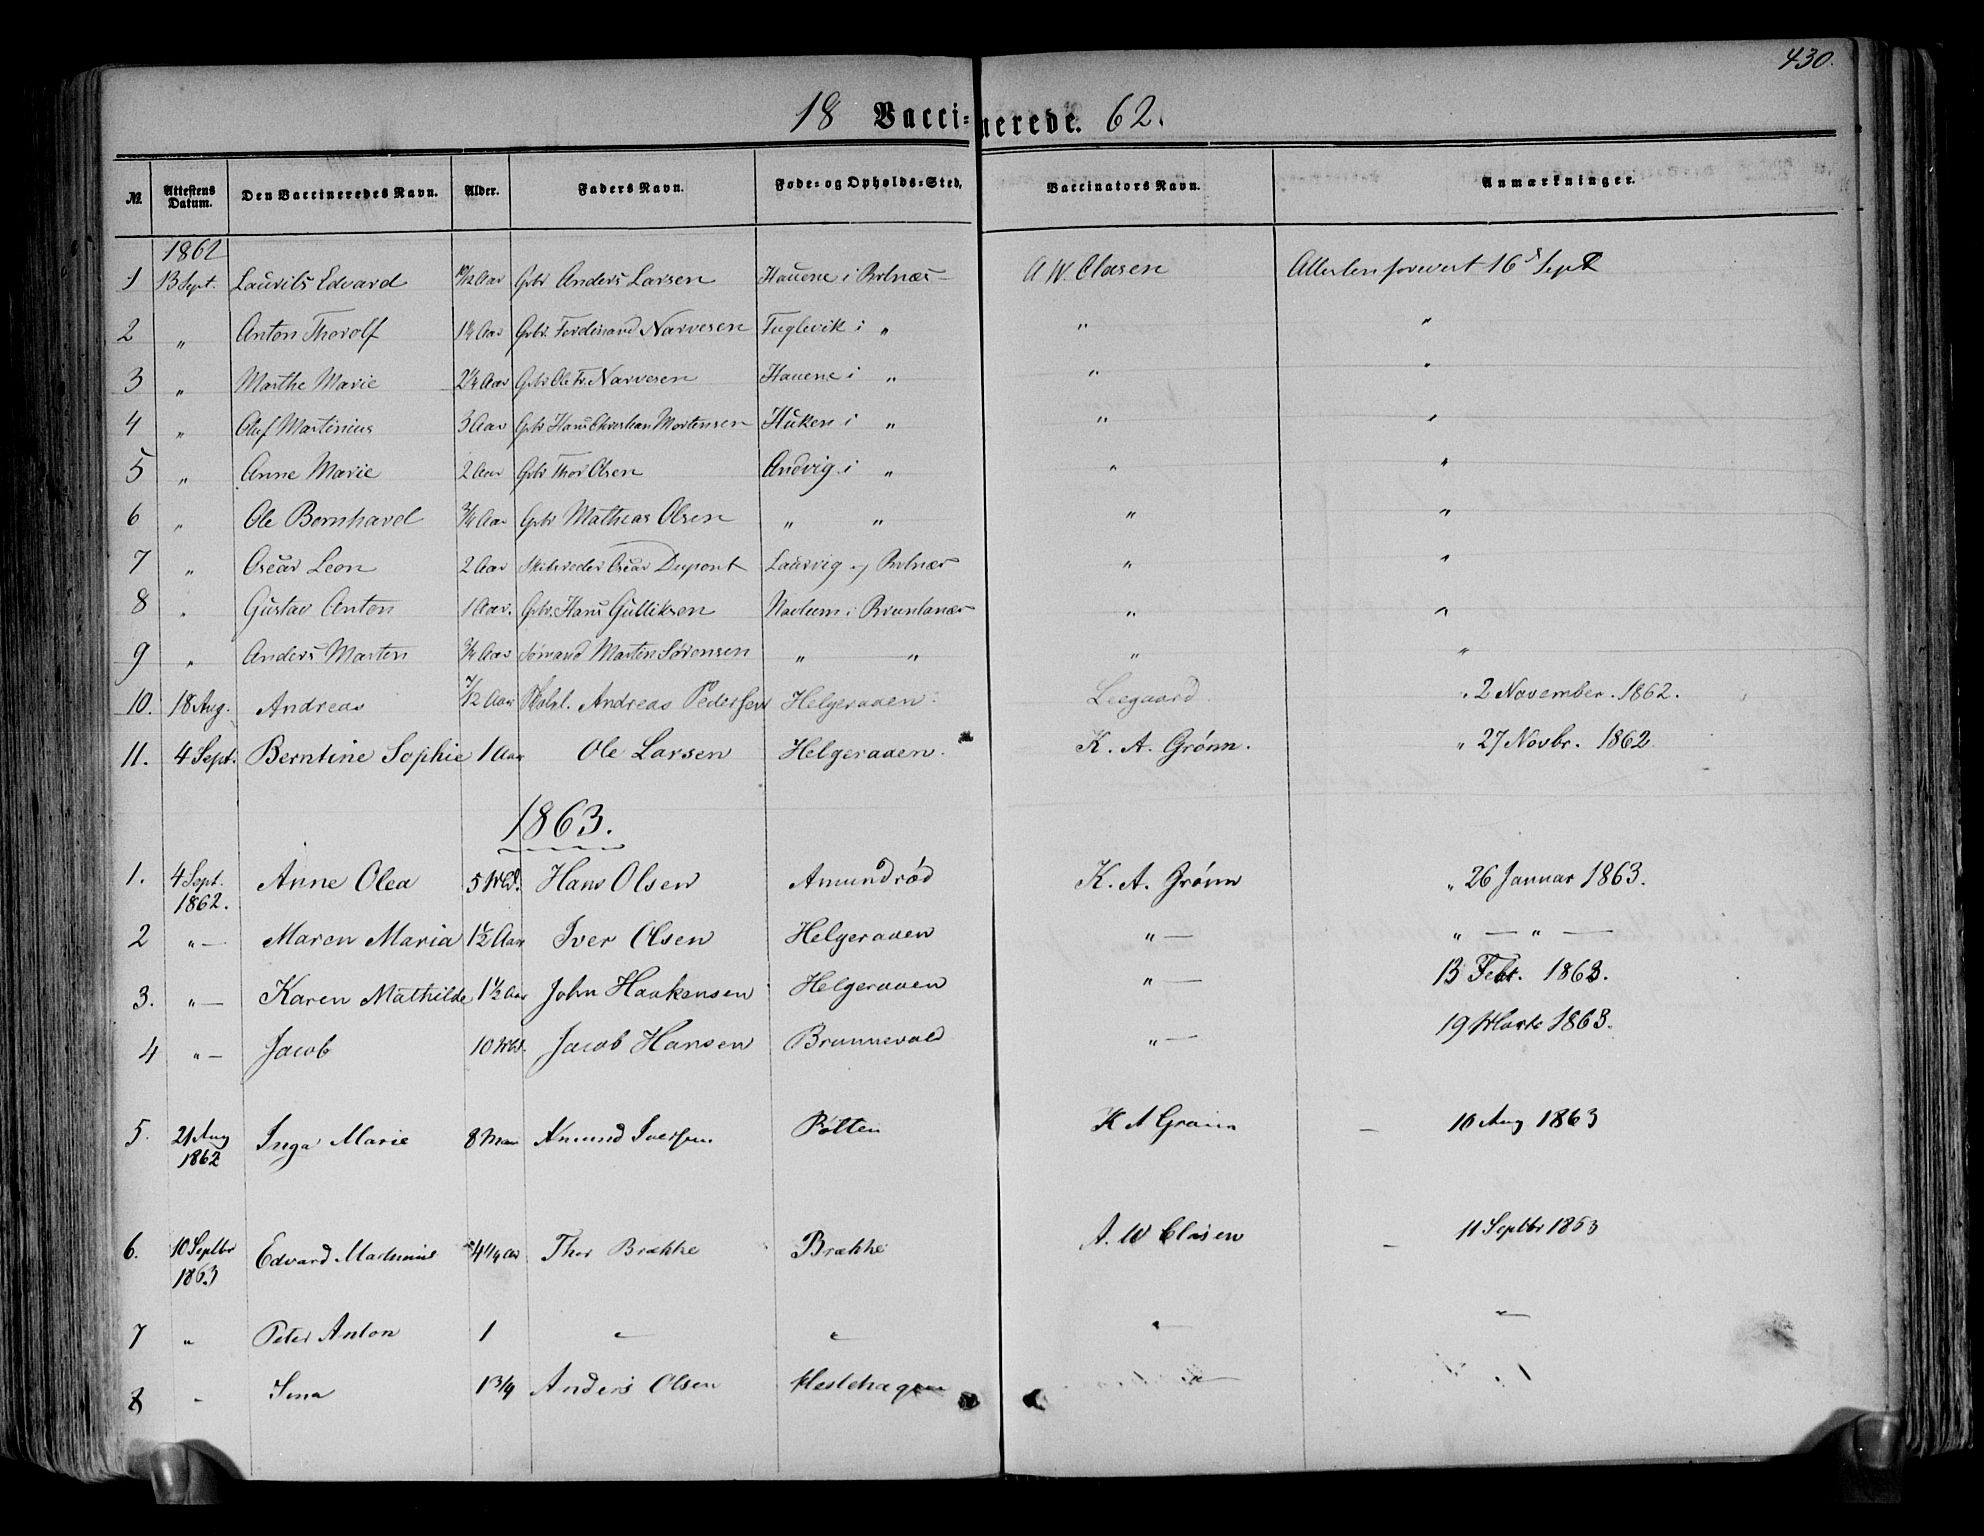 430.
18 Vaccinerede. 62.
№ Attestens Datum. Den Vaccineredes Navn. Alder. Faders Navn. Føde- og Opholds-Sted. Vaccinators Navn. Anmærkninger.
1862
1 13 Sept. Laurits Edvard 10/12 Aar Gbr Anders Larsen Hauene i Brlnæs A W. Clasen Attesten forevist 16d Sept
2 " Anton Thorolf 1¼ Aar Gbr. Ferdinand Narvesen Fuglevik i " " "
3 " Marthe Marie 2¼ Aar Gbr Ole Fr. Narvesen Hauene i " " "
4 " Oluf Martinius 3 Aar Gbr Hans Christian Mortensen Huken i " " "
5 " Anne Marie 2 Aar Gbr Thor Olsen Andvig i " " "
6 " Ole Bernhard ¾ Aar Gbr Mathias Olsen " " " "
7 " Oscar Leon 2 Aar Skibsreder Oscar Dupont Laurvig og Brlnæs " "
8 " Gustav Anton 1 Aar. Gbr. Hans Gulliksen i Brunlanæs " "
9 " Anders Marten ¾ Aar Sømand Marten Sørensen " " " "
10. 18 Aug. Andreas 7/12 Aar Andreas Pedersen Helgeraaen Leegaard " 2 November. 1862.
11. 4 Sept. Berntine Sophie 1 Aar Ole Larsen Helgeraaen. K. A. Grönn. " 27 Novbr. 1862
1863.
1. 4 Sept. Anne Olea 5 Md. Hans Olsen Amundrød K. A. Grönn " 26 Januar 1863.
1862.
2 "— Maren Maria 1½ Aar Iver Olsen Helgeraaen "— " — " —
3. "— Karen Mathilde 1½ Aar John Haakensen Helgeraaen "— 13 Febr. 1863.
4 "— Jacob 10 Md. Jacob Hansen Brunnevald "— 19 Marts 1863.
5. 21 Aug Inga Marie 8 Amund Iversen Pølten K A Grönn — 10 Aug 1863
1862
6. 10 Septbr Edvard 4¼ Aar Thor Brække Brække A. W Clasen — 11 Septbr 1863
1863
7 " Peter Anton 1 "— "— "— "—
8 - Sina 1 3/4 Anders Olsen Hestehagen "—